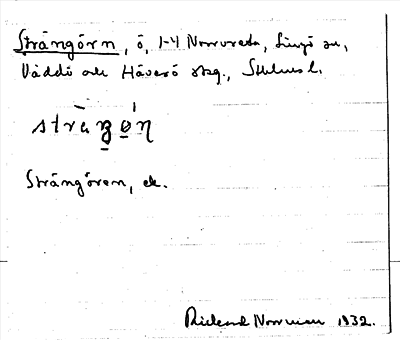 Strängörn, ö, 1-4 Norrvreta, Singö sn,
Väddö och Häverö skg., Sthlms l.
Strängören, ek.
Rickard Norrman 1932.